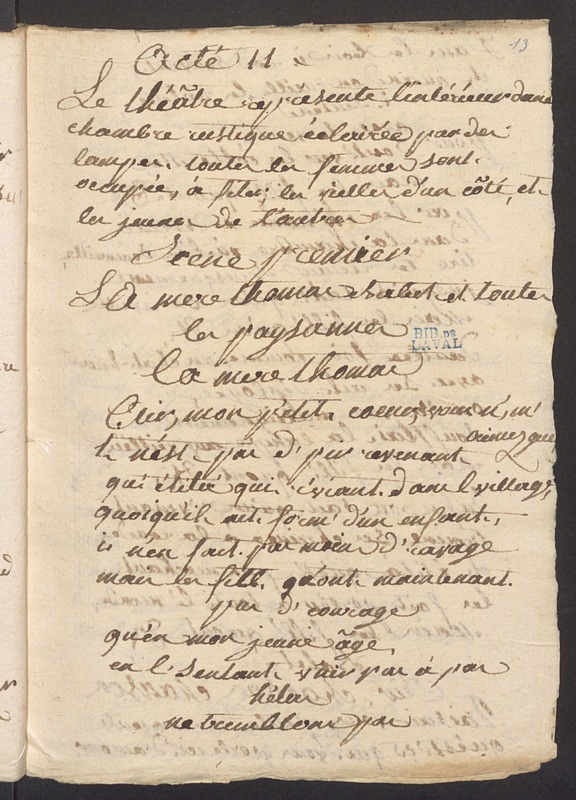 13
Acte 11
Le théâtre represente l'intérieur d'une
chambre rustique éclairée par des
lampes. toutes les femmes sont
occupée, a filer; les vielles d'un côté, et
les jeunes de l'autre
Scene premier
La mere thomas babet et toutes
les paysannes
BIB. DE
LAVAL
la mere thomas
mon p'tit coeur, n' m'
aimez que
n'est pas d' pus avenant
qui dans l' village
quoiqu'il ait form' d'un enfant,
i n'en fait pas moin d' ravage
mais les fill' qu'ont maintenant
pus d' courage
qu'en mon jeune âge,
en l' sentant v'nir pas à pas
hélas
ne tremblons pas